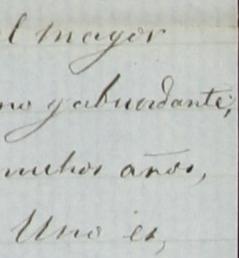 l mayor
no y abundante,
muchos años,
Uno es,